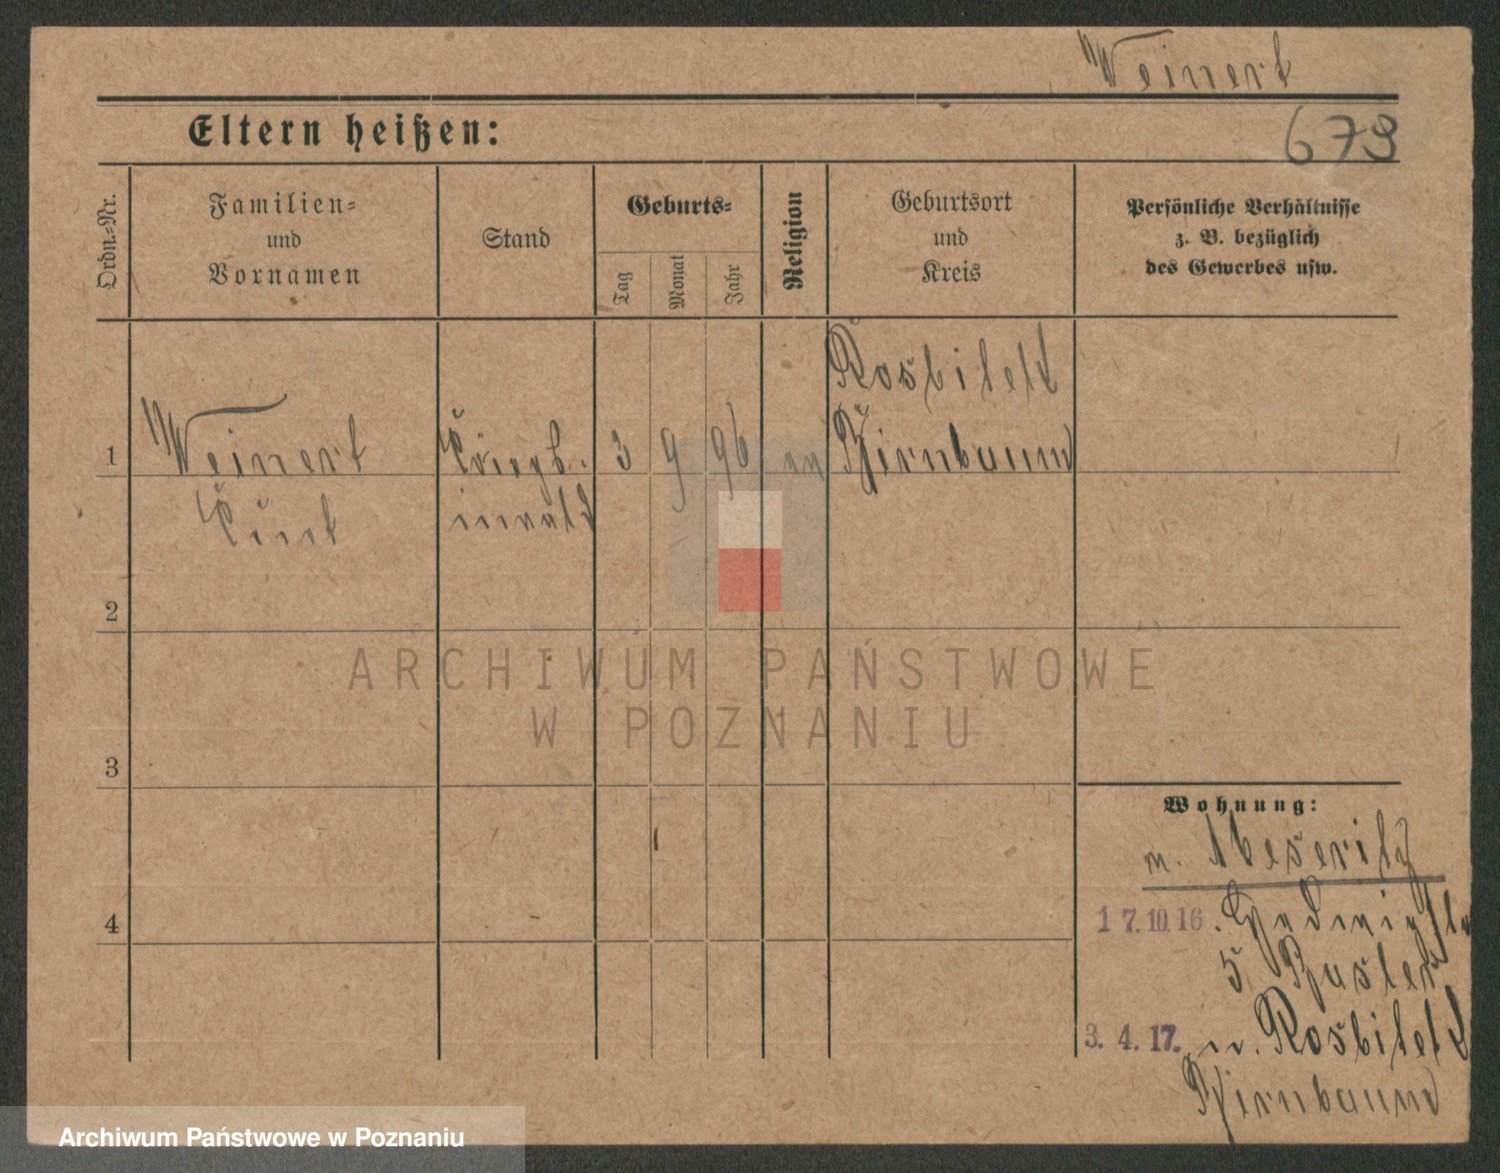 Weinert
Eltern heißen:
679
Ordn.-Nr.
Familien-
und
Vornamen
Stand
Geburts-
Tag
Monat
Jahr
Religion
Geburtsort
und
Kreis
Persönliche Verhältnisse
z. B. bezüglich
des Gewerbes usw.
1
Weinert
Kurt
Kriegs-
invalid
3
9
96
Birnbaum
2
3
4
Wohnung:
n. Meseritz
17.10.16.
5
3. 4. 17.
n.
Birnbaum
ARCHIWUM PAŃSTWOWE
W POZNANIU
Archiwum Państwowe w Poznaniu